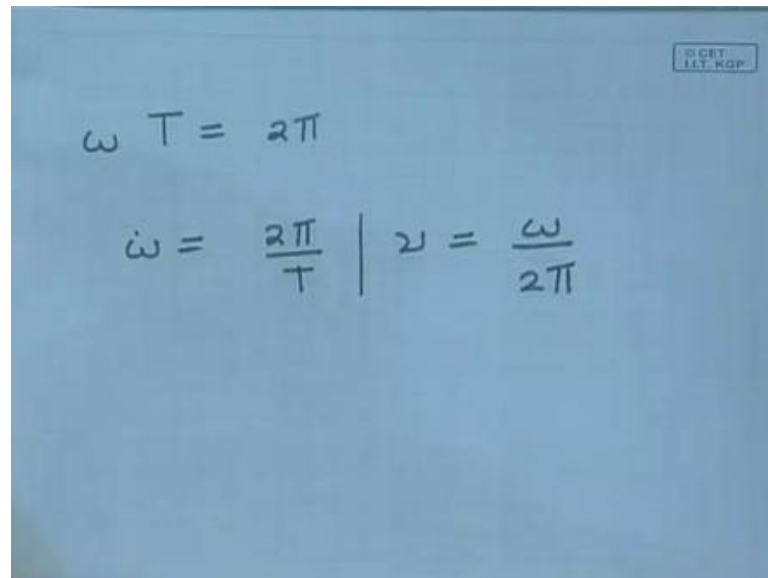 © CET
I.I.T. KGP
ω T = 2π
ω̇ = 2π/T | ν = ω/2π